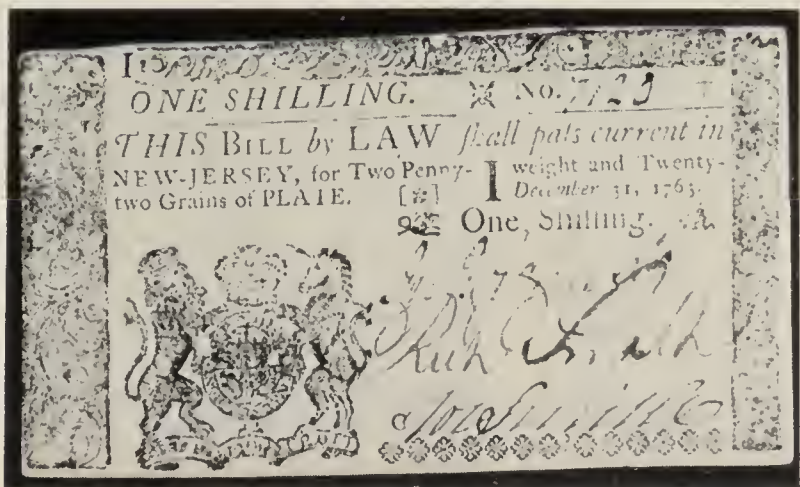 ONE SHILLING. No. 7123
THIS BILL by LAW ſhall paſs current in
NEW-JERSEY, for Two Penny-weight and Twenty-
two Grains of PLATE. [*] December 31, 1763.
One Shilling.
Rich Smith
Jos Smith